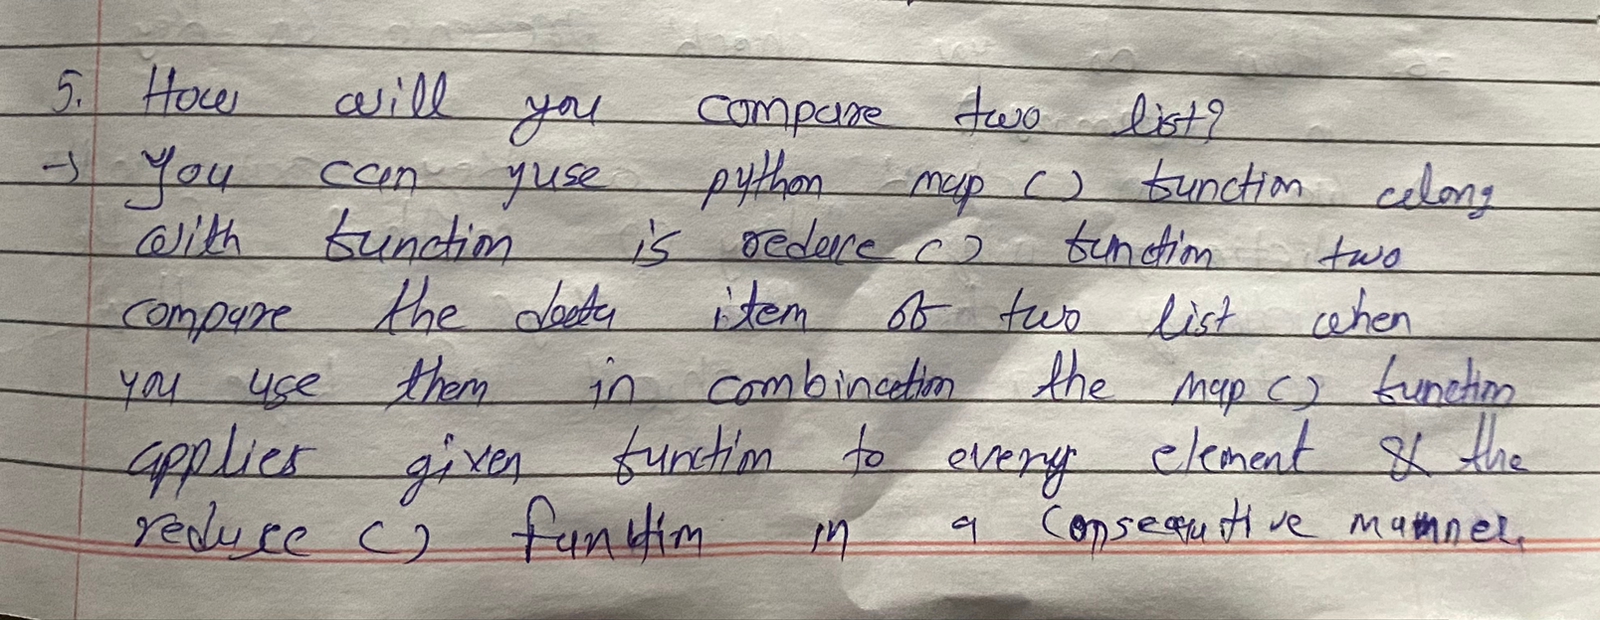 5. How will you compare two list?
→ You can yuse python map () function along
with function is reduce () function two
compare the data item of two list when
you use them in combination the map () function
applies given function to every element & the
reduce () function in a consecutive manner.